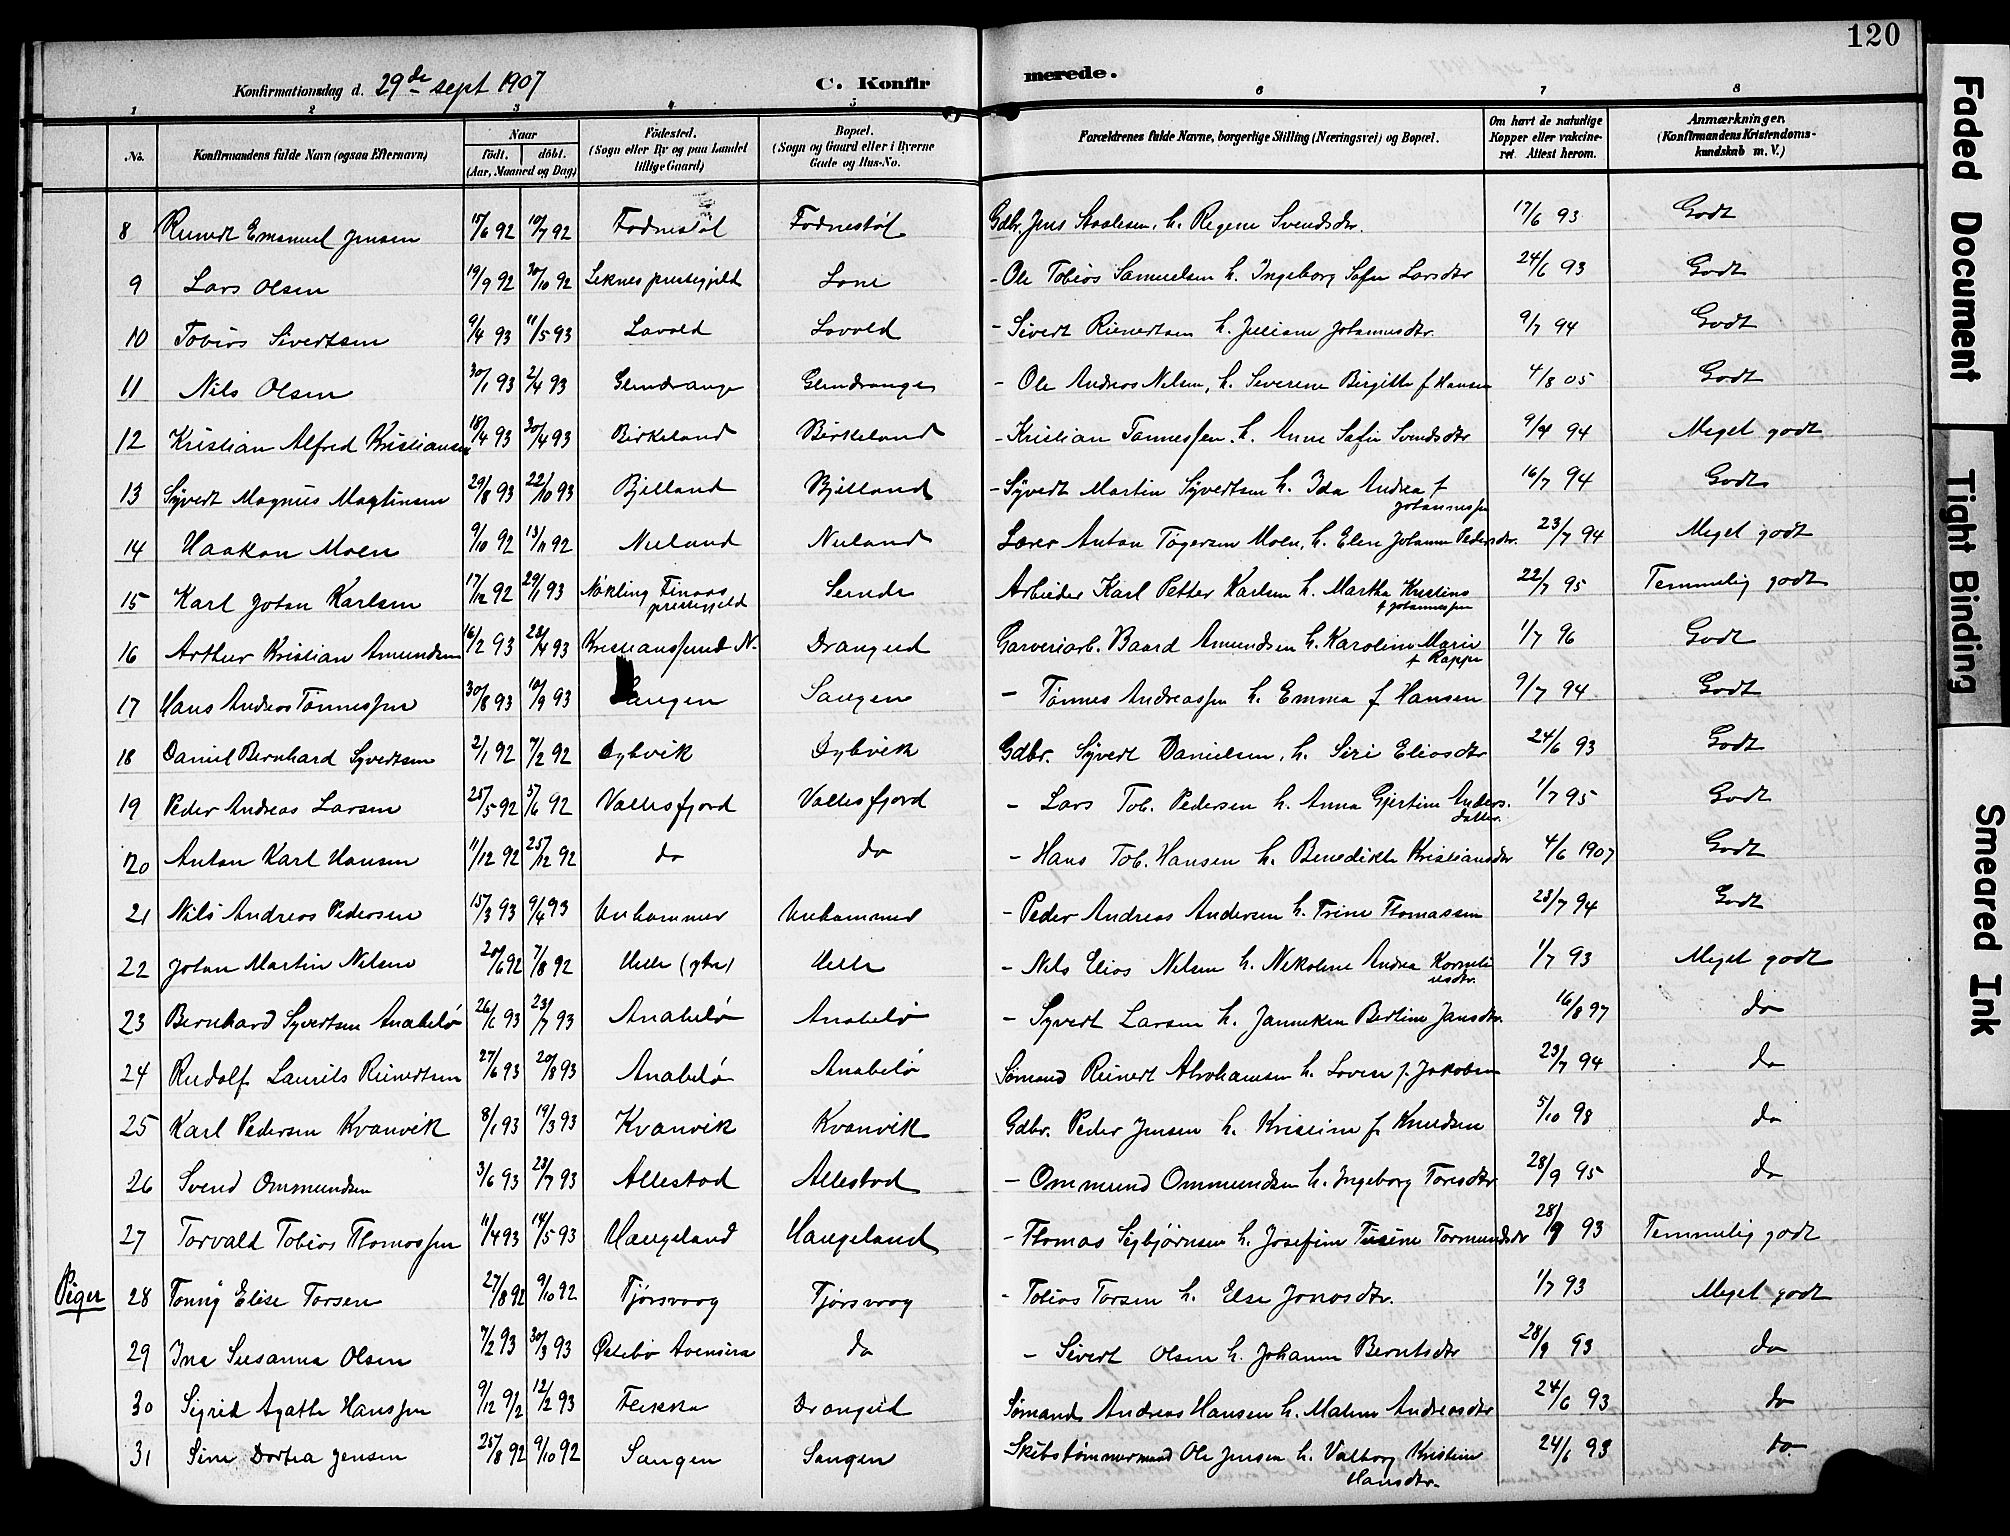 120
Konfirmationsdag d. 29de sept 1907 C. Konfirmerede.
1 2 3 4 5 6 7 8
No. Konfirmandens fulde Navn (ogsaa Efternavn) Naar født. døbt. (Aar, Maaned og Dag) Fødested. (Sogn eller By og paa Landet tillige Gaard) Bopæl. (Sogn og Gaard eller i Byerne Gade og Hus-No. Forældrenes fulde Navne, borgerlige Stilling (Næringsvei) og Bopæl. Om havt de naturlige Kopper eller vakcineret. Attest herom. Anmærkninger. (Konfirmandens Kristendomskundskab m. V.)
8 Reinert Emanuel Jensen 15/6 92 10/7 92 Fodnestøl Fodnestøl Gdbr. Jens Staalesen, h. Regine Svendsdtr. 17/6 93 Godt
9 Lars Olsen 19/9 92 30/10 92 Leknes prestegjeld Lone - Ole Tobias Samuelsen h. Ingeborg Sofie Larsdtr 24/6 93 Godt
10 Tobias Sivertsen 9/4 93 11/5 93 Lavold Lavold - Sivert Reinertsen h. Juliane Johannesdtr. 9/7 94 Godt
11 Nils Olsen 30/1 93 2/4 93 Glendrange Glendrange - Ole Andreas Nilsen, h. Severine Birgitte f Hansen 4/8 05 Godt
12 Kristian Alfred Kristiansen 18/4 93 30/4 93 Birkeland Birkeland - Kristian Tønnessen h. Anne Sofie Svendsdtr 9/4 94 Meget godt
13 Syvert Magnus Martinsen 29/8 93 22/10 93 Bjelland Bjelland - Syvert Martin Syvertsen h. Ida Andrea f Johannessen 16/7 94 Godt
14 Haakon Moen 9/10 92 13/11 92 Nuland Nuland Lærer Anton Tøgersen Moen, h. Elen Johanne Pedersdtr. 23/7 94 Meget godt
15 Karl Johan Karlsen 17/12 92 29/1 93 Nøkling Finaas prestegjeld Sunde Arbeider Karl Petter Karlsen h. Martha Kristine f Johannessen 22/7 95 Temmelig godt
16 Arthur Kristian Amundsen 16/2 93 23/4 93 Kristianssund N. Drangeid Garveriarb. Baard Amundsen h. Karoline Marie f Rappe 1/7 96 Godt
17 Hans Andreas Tønnessen 30/8 93 10/9 93 Langen Sangen - Tønnes Andreassen h. Emma f Hansen 9/7 94 Godt
18 Daniel Bernhard Syvertsen 2/1 92 7/2 92 Dybvik Dybvik Gdbr. Syvert Danielsen, h. Siri Eliasdtr 24/6 93 Godt
19 Peder Andreas Larsen 25/5 92 5/6 92 Vattesfjord Vattesfjord - Lars Tob. Pedersen h. Anna Gjertine Andersdatter. 1/7 95 Godt
20 Anton Karl Hansen 11/12 92 25/12 92 do do - Hans Tob. Hansen h. Benedikte Kristiansdtr 4/6 1907 Godt
21 Nils Andreas Pedersen 15/3 93 9/4 93 Urhammer Urhammer - Peder Andreas Andersen h. Trine Thomassen 23/7 94 Godt
22 Johan Martin Nilsen 20/6 92 7/8 92 Helle (ytre) Helle - Nils Elias Nilsen h. Nikoline Andrea Korneliusdtr. 1/7 93 Meget godt
23 Bernhard Syvertsen Anabelø 26/6 93 23/7 93 Anabelø Anabelø - Syvert Larsen h. Janneken Bertine Jansdtr. 16/8 97 do
24 Rudolf Laurits Reinertsen 27/6 93 20/8 93 Anabelø Anabelø Sømand Reinert Abrahamsen h. Lovise f. Jakobsen 23/7 94 do
25 Karl Pedersen Kvanvik 8/1 93 19/3 93 Kvanvik Kvanvik Gdbr. Peder Jensen h. Kristine f Knudsen 5/10 98 do
26 Svend Ommundsen 3/6 93 23/7 93 Allestad Allestad - Ommund Ommundsen h. Ingeborg Toresdtr 28/9 95 do
27 Torvald Tobias Thomassen 11/4 93 14/5 93 Haugeland Haugeland - Thomas Sigbjørnsen h. Josefine Tusine Tormundsdtr 28/9 93 Temmelig godt
Piger 28 Tonny Elise Torsen 27/8 92 9/10 92 Tjørsvaag Tjørsvaag - Tobias Torsen h. Else Jonasdtr. 1/7 93 Meget godt
29 Ina Susanna Olsen 7/2 93 30/3 93 Østebø Avensira do - Sivert Olsen h. Johanne Berntsdtr 28/9 93 do
30 Sigrid Agathe Hanssen 9/12 92 12/2 93 Flikka Drangeid Sømand Andreas Hansen h. Malene Andreasdtr 24/6 93 do
31 Sine Dortea Jensen 25/8 92 9/10 92 Sangen Sangen Skibstømmermand Ole Jensen h. Valborg Kristine Hansdtr. 24/6 93 do
Faded Document
Tight Binding
Smeared Ink